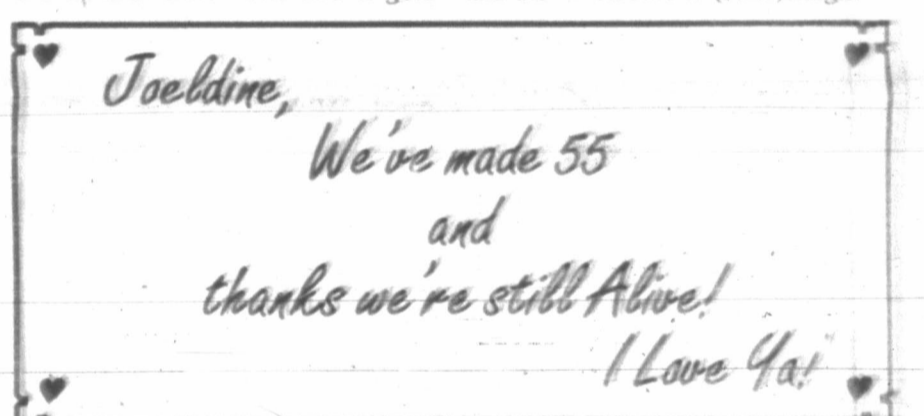 Joeldine,
We've made 55
and
thanks we're still Alive!
I Love Ya!